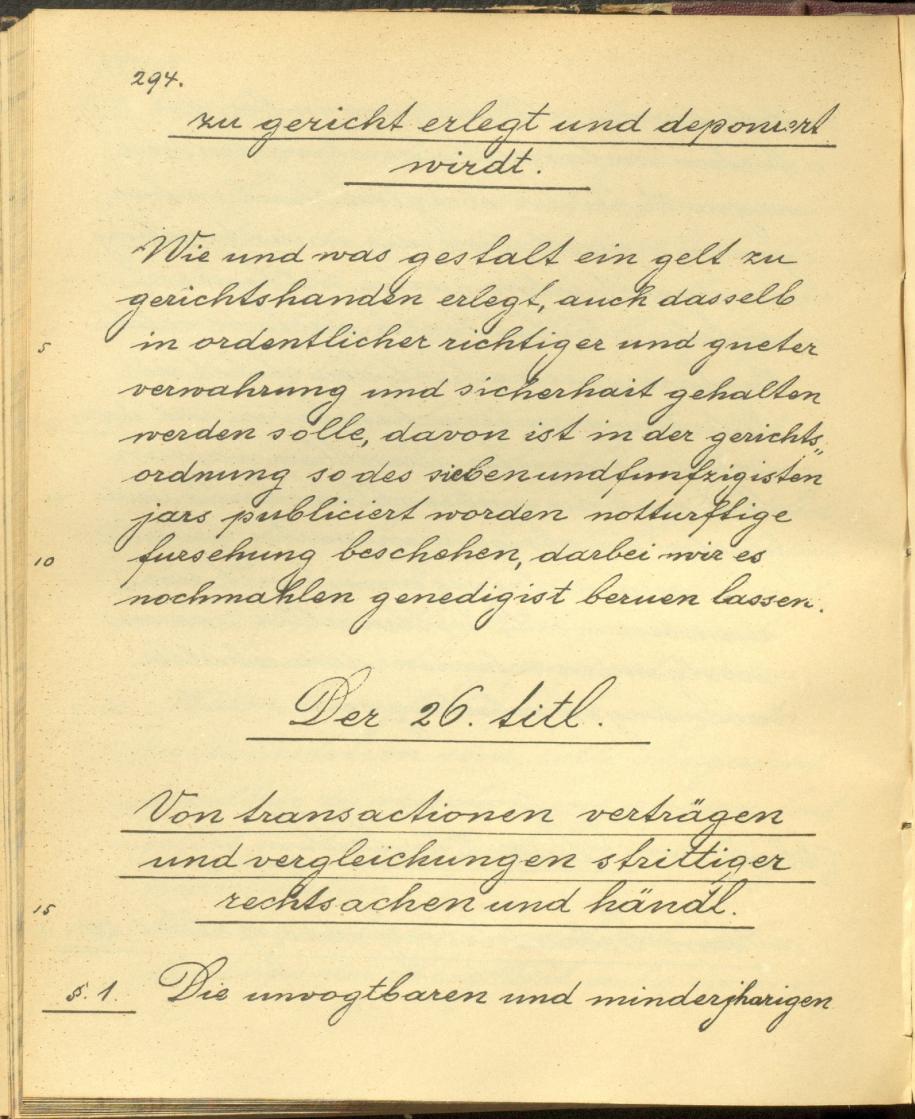 294.
zu gericht erlegt und deponiert
wirdt.
Wie und was gestalt ein gelt zu
gerichtshanden erlegt, auch dasselb
5 in ordentlicher richtiger und gueter
verwahrung und sicherhait gehalten
werden solle, davon ist in der gerichts„
ordnung so des siebenundfunfzigisten
jars publiciert worden notturftige
10 fursehung beschehen, darbei wir es
nochmahlen genedigist beruen lassen.
Der 26. titl.
Von transactionen verträgen
und vergleichungen strittiger
15 rechtsachen und händl.
§. 1. Die unvogtbaren und minderjharigen